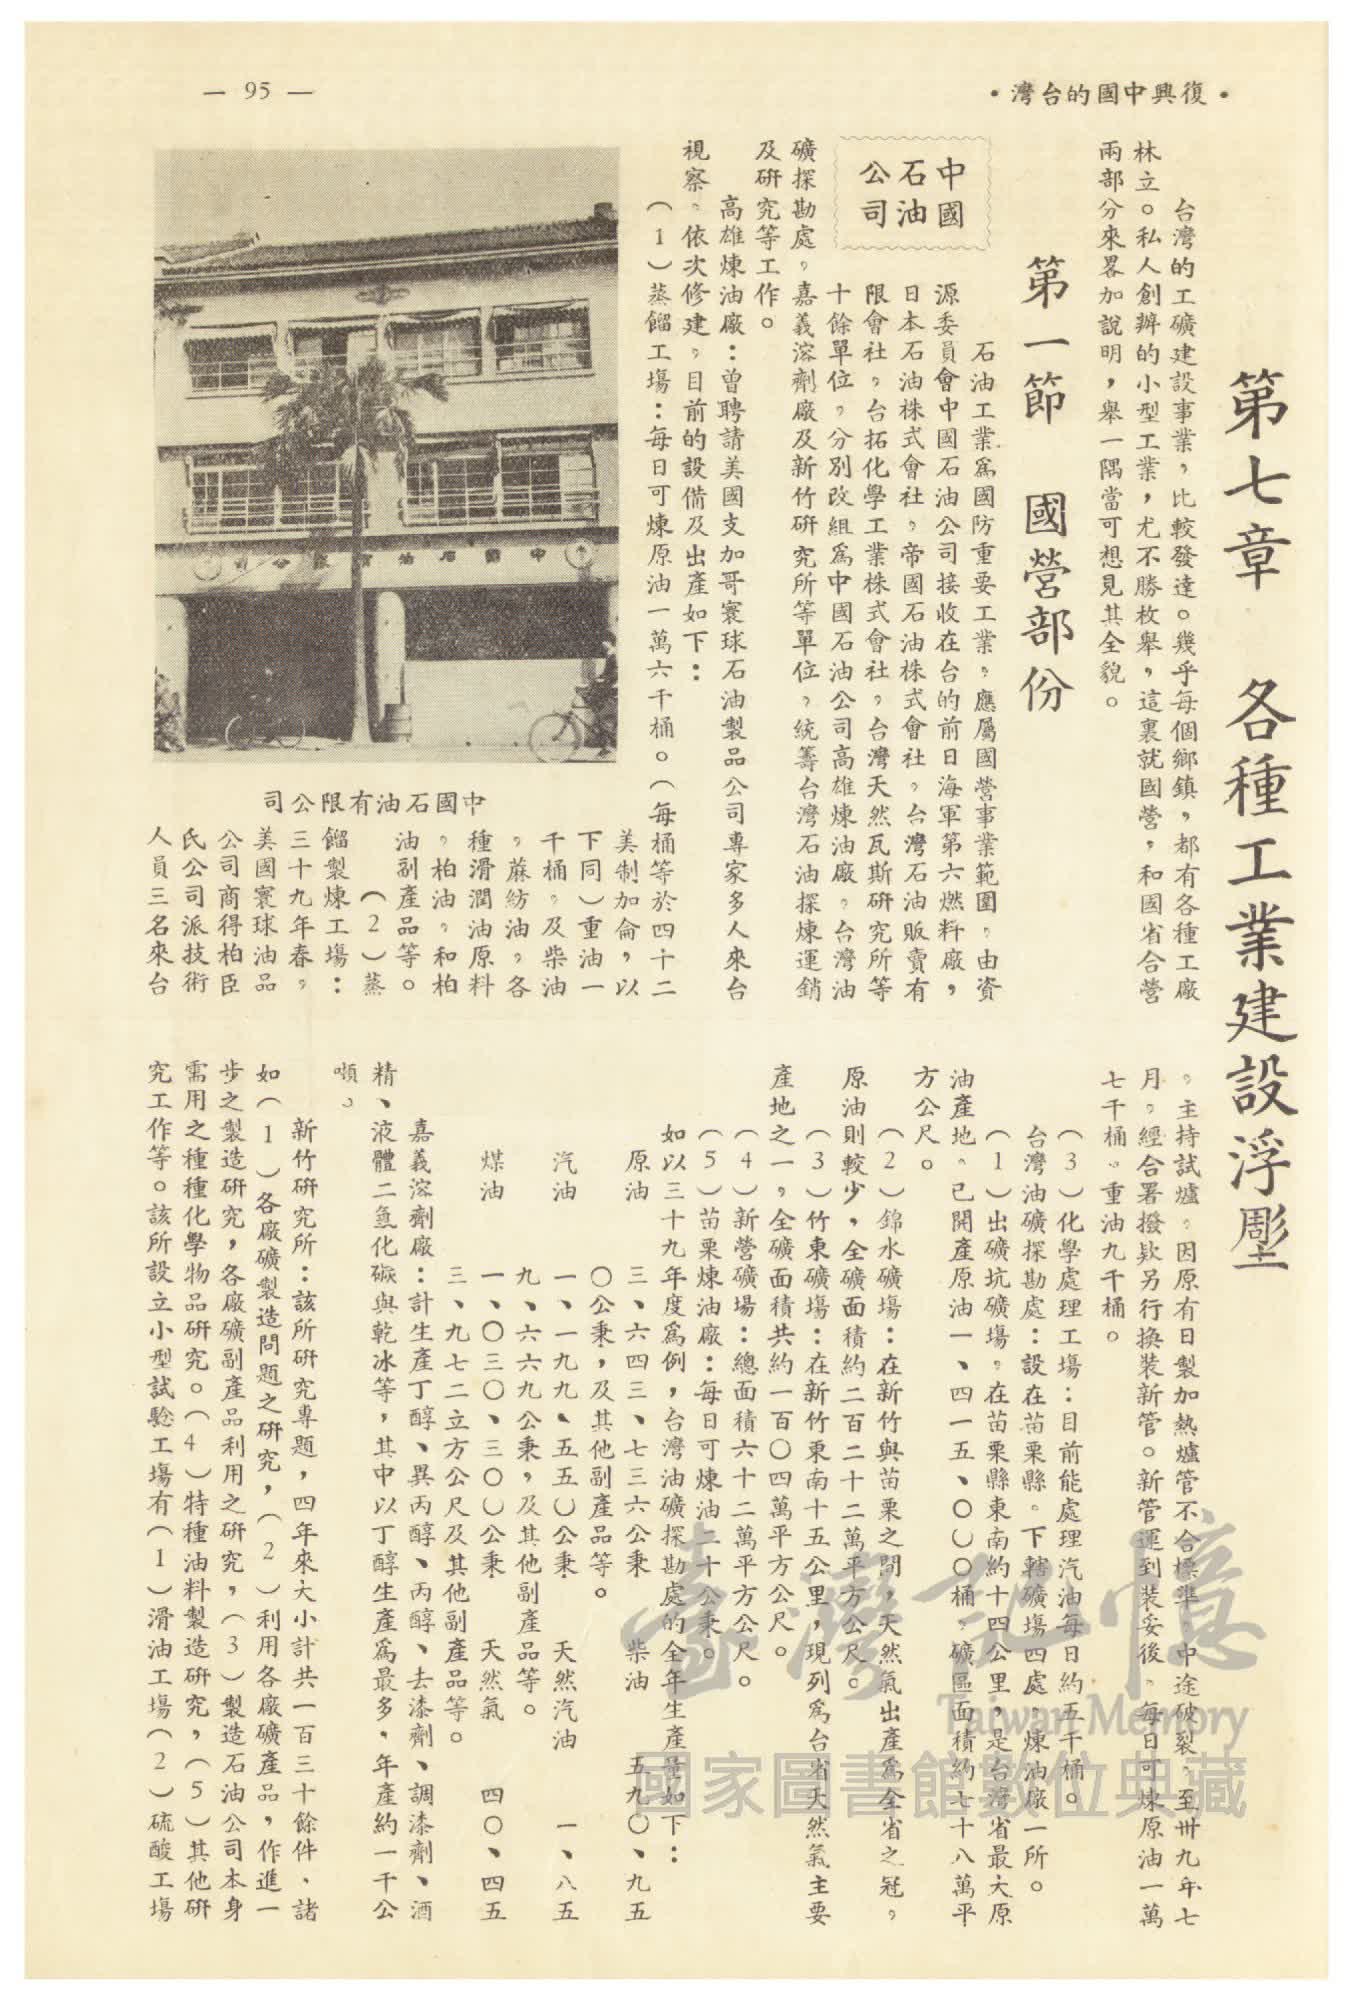 •復興中國的台灣•
— 95 —
第七章　各種工業建設浮彫
台灣的工礦建設事業，比較發達。幾乎每個鄉鎮，都有各種工廠
林立。私人創辦的小型工業，尤不勝枚舉，這裏就國營，和國省合營
兩部分來畧加說明，舉一隅當可想見其全貌。
第一節　國營部份
中國
石油
公司
石油工業爲國防重要工業，應屬國營事業範圍，由資
源委員會中國石油公司接收在台的前日海軍第六燃料廠，
日本石油株式會社，帝國石油株式會社，台灣石油販賣有
限會社，台拓化學工業株式會社，台灣天然瓦斯研究所等
十餘單位，分別改組爲中國石油公司高雄煉油廠，台灣油
礦探勘處，嘉義溶劑廠及新竹研究所等單位，統籌台灣石油探煉運銷
及研究等工作。
高雄煉油廠：曾聘請美國支加哥寰球石油製品公司專家多人來台
視察，依次修建，目前的設備及出產如下：
（1）蒸餾工塲：每日可煉原油一萬六千桶。（每桶等於四十二
美制加侖，以
下同）重油一
千桶，及柴油
，蔴紡油，各
種滑潤油原料
，柏油，和柏
油副產品等。
（2）蒸
餾製煉工塲：
三十九年春，
美國寰球油品
公司商得柏臣
氏公司派技術
人員三名來台
中國石油有限公司
中國石油有限公司
，主持試爐，因原有日製加熱爐管不合標準，中途破裂，至卅九年七
月，經合署撥欵另行換裝新管。新管運到裝妥後，每日可煉原油一萬
七千桶，重油九千桶。
（3）化學處理工塲：目前能處理汽油每日約五千桶。
台灣油礦探勘處：設在苗栗縣。下轄礦塲四處，煉油廠一所。
（1）出礦坑礦塲，在苗栗縣東南約十四公里，是台灣省最大原
油產地，已開產原油一、四一五、〇〇〇桶，礦區面積約七十八萬平
方公尺。
（2）錦水礦塲：在新竹與苗栗之間，天然氣出產爲全省之冠，
原油則較少，全礦面積約二百二十二萬平方公尺。
（3）竹東礦塲：在新竹東南十五公里，現列爲台省天然氣主要
產地之一，全礦面積共約一百〇四萬平方公尺。
（4）新營礦場：總面積六十二萬平方公尺。
（5）苗栗煉油廠：每日可煉油二十公秉。
如以三十九年度爲例，台灣油礦探勘處的全年生產量如下：
原油　三、六四三、七三六公秉　柴油　五九〇、九五
〇公秉，及其他副產品等。
汽油　一、一九九、五五〇公秉　天然汽油　一、八五
九、六六九公秉，及其他副產品等。
煤油　一、〇三〇、三〇〇公秉　天然氣　四〇、四五
三、九七二立方公尺及其他副產品等。
嘉義溶劑廠：計生產丁醇、異丙醇、丙醇、去漆劑、調漆劑、酒
精、液體二氫化碳與乾冰等，其中以丁醇生產爲最多，年產約一千公
噸。
新竹研究所：該所研究專題，四年來大小計共一百三十餘件，諸
如（1）各廠礦製造問題之研究，（2）利用各廠礦產品，作進一
步之製造研究，各廠礦副產品利用之研究，（3）製造石油公司本身
需用之種種化學物品研究。（4）特種油料製造研究，（5）其他研
究工作等。該所設立小型試騐工塲有（1）滑油工塲（2）硫酸工塲
臺灣記憶
Taiwan Memory
國家圖書館數位典藏